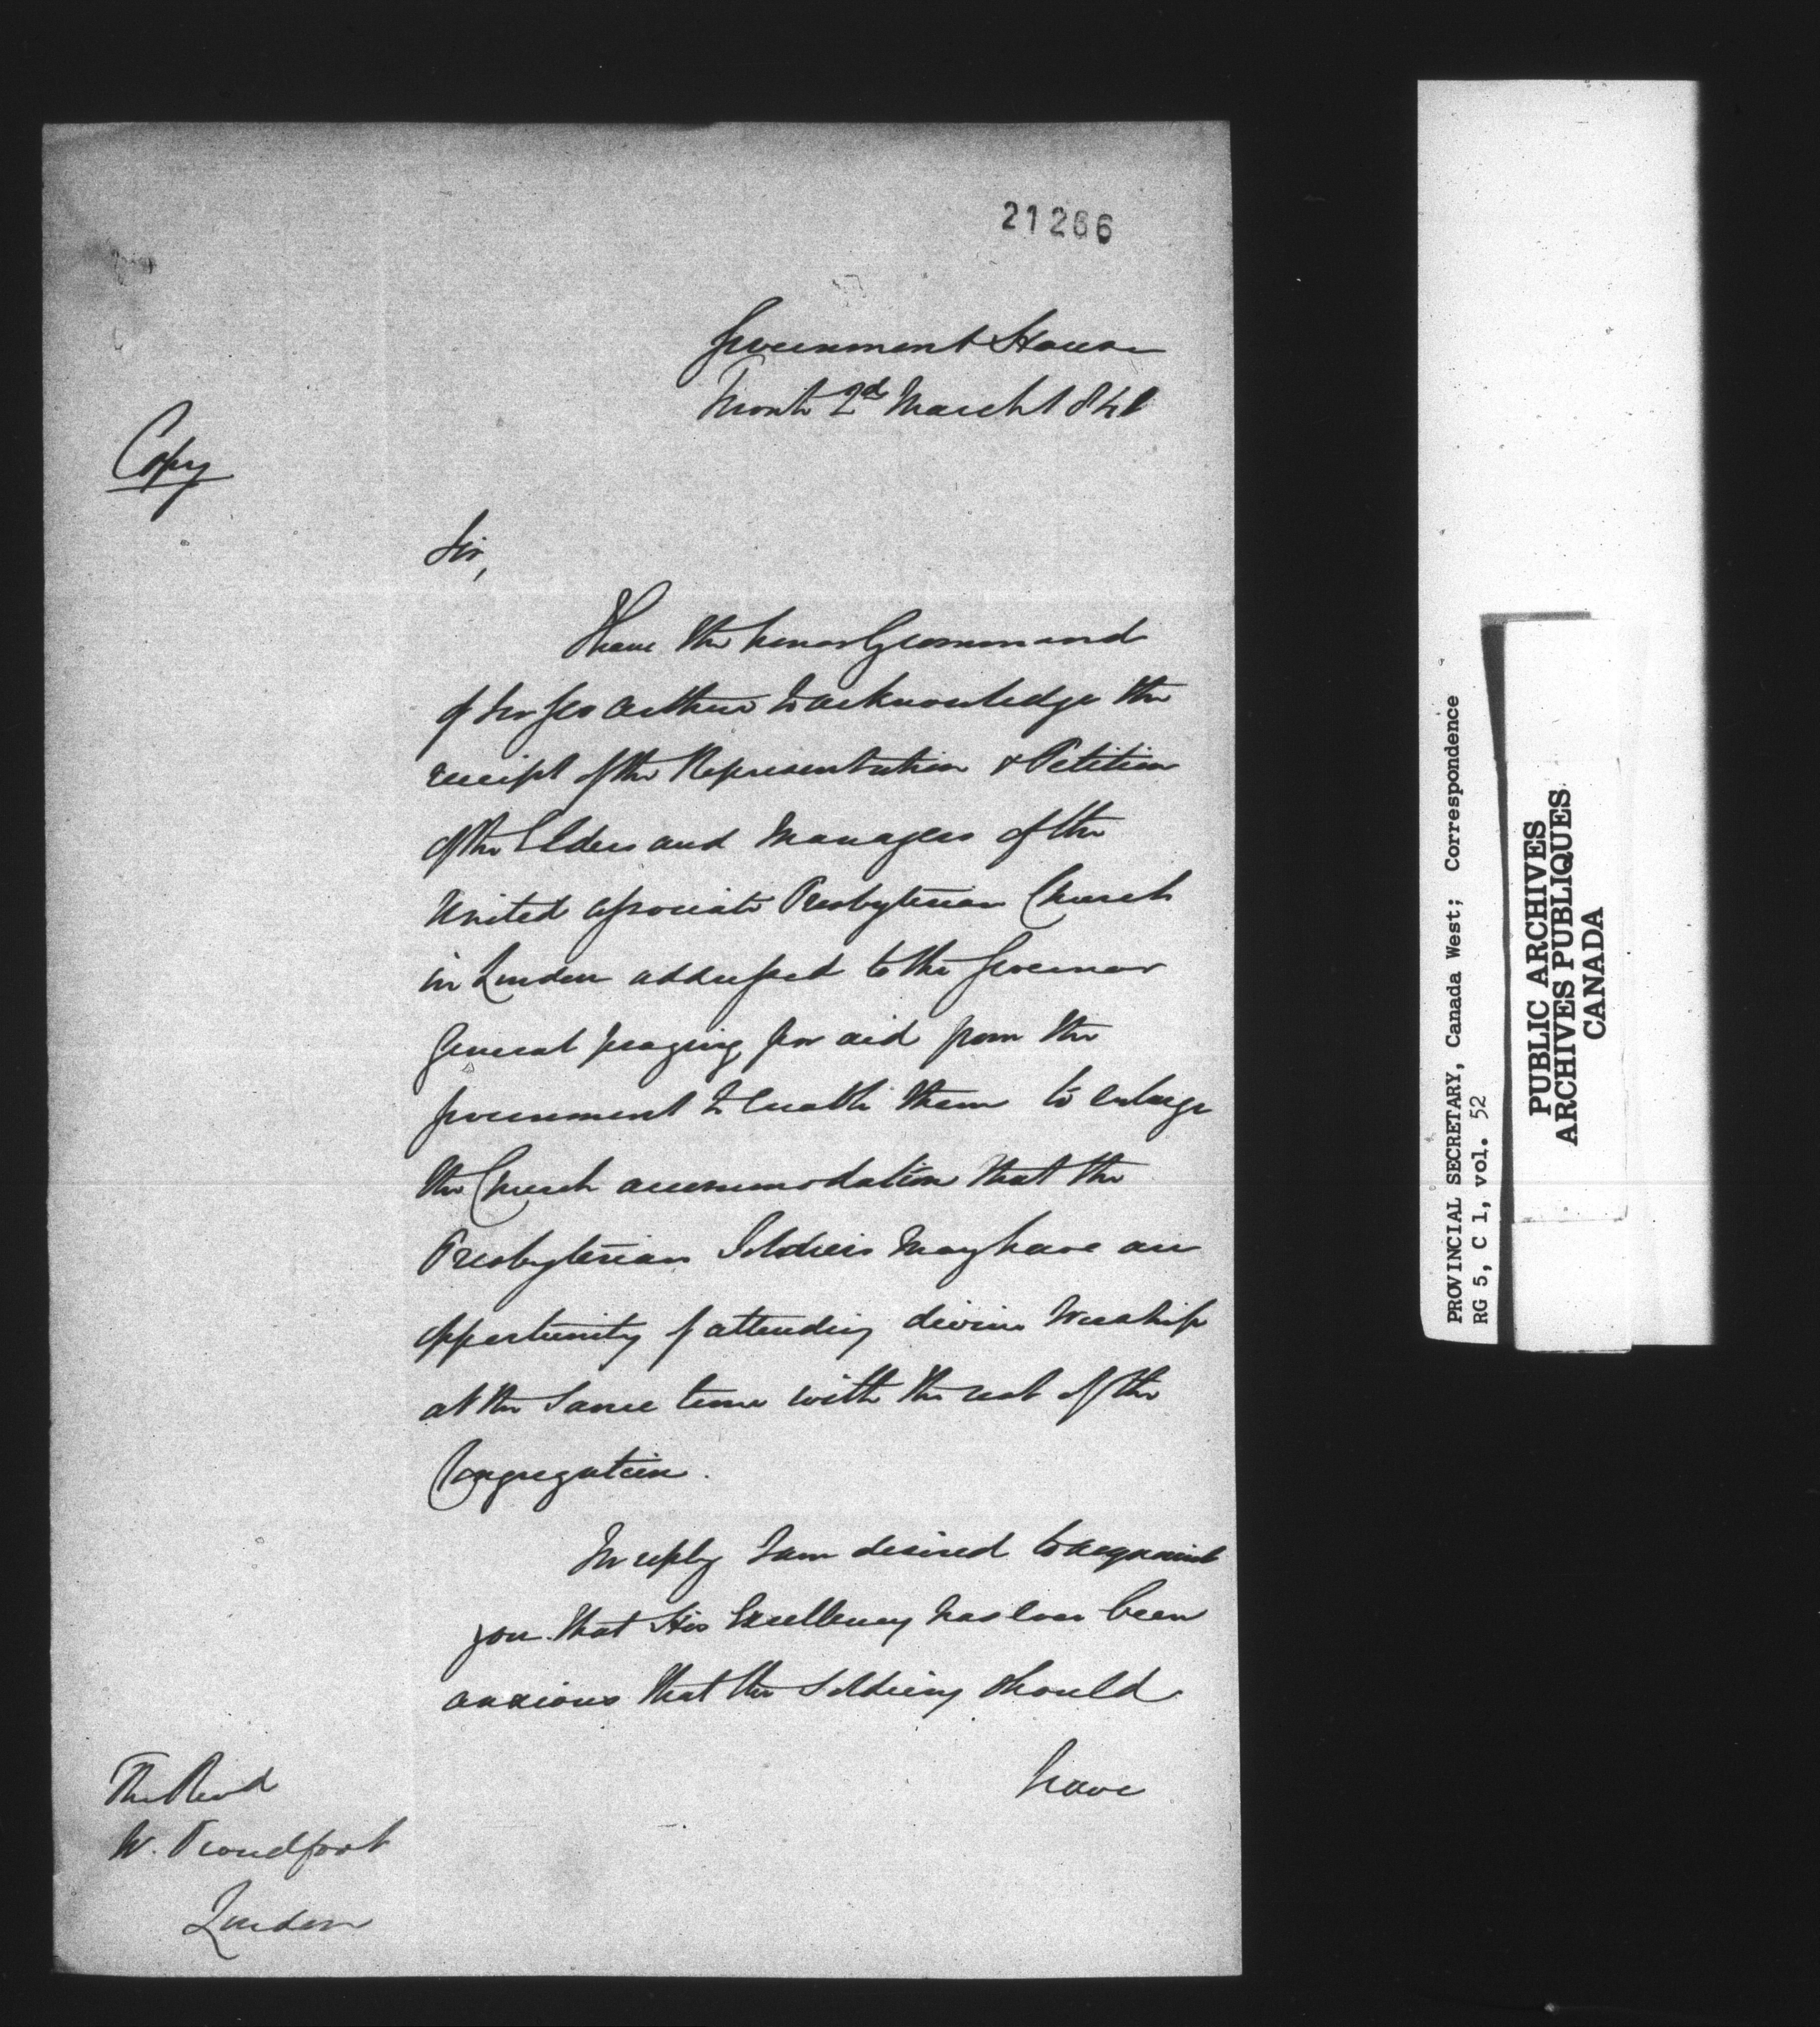 21266
Government House
Toronto 2d March 1841
Copy
Sir,
I have the honor by command
of Sir Geo Arthur to acknowledge the
receipt of the Representation & Petition
of the Elders and Managers of the
United Associate Presbyterian Church
in London addressed to the Governor
General praying for aid from the
Government to enable them to enlarge
the Church accommodation that the
Presbyterian Soldiers may have an
opportunity of attending divine Worship
at the same time with the rest of the
Congregation.
In reply I am desired to acquaint
you that His Excellency has ever been
anxious that the Soldiery should
have
The Revd
W. Proudfoot
London
PROVINCIAL SECRETARY, Canada West; Correspondence
RG 5, C 1, vol. 52
PUBLIC ARCHIVES
ARCHIVES PUBLIQUES
CANADA